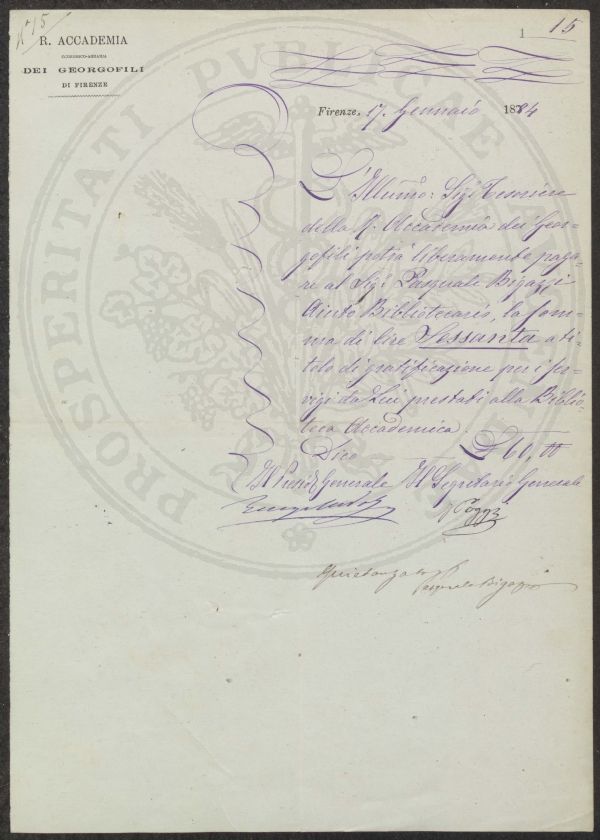 N° 15
1 15
R. ACCADEMIA
ECONOMICO-AGRARIA
DEI GEORGOFILI
DI FIRENZE
PROSPERITATI PUBLICAE
Firenze, 17. Gennaio 1884
L'Illumo: Sigr Tesoriere
della R. Accademia dei Geor-
gofili potrà liberamente paga-
re al Sigr Pasquale Bigazzi
Aiuto Bibliotecario, la som-
ma di lire Sessanta a ti-
tolo di gratificazione per i ser-
vigi da Lui prestati alla Biblio-
teca Accademica.
Dico £ 60,00
Il Presid. Generale Il Segretario Generale
Quietanzato
Pasquale Bigazzi